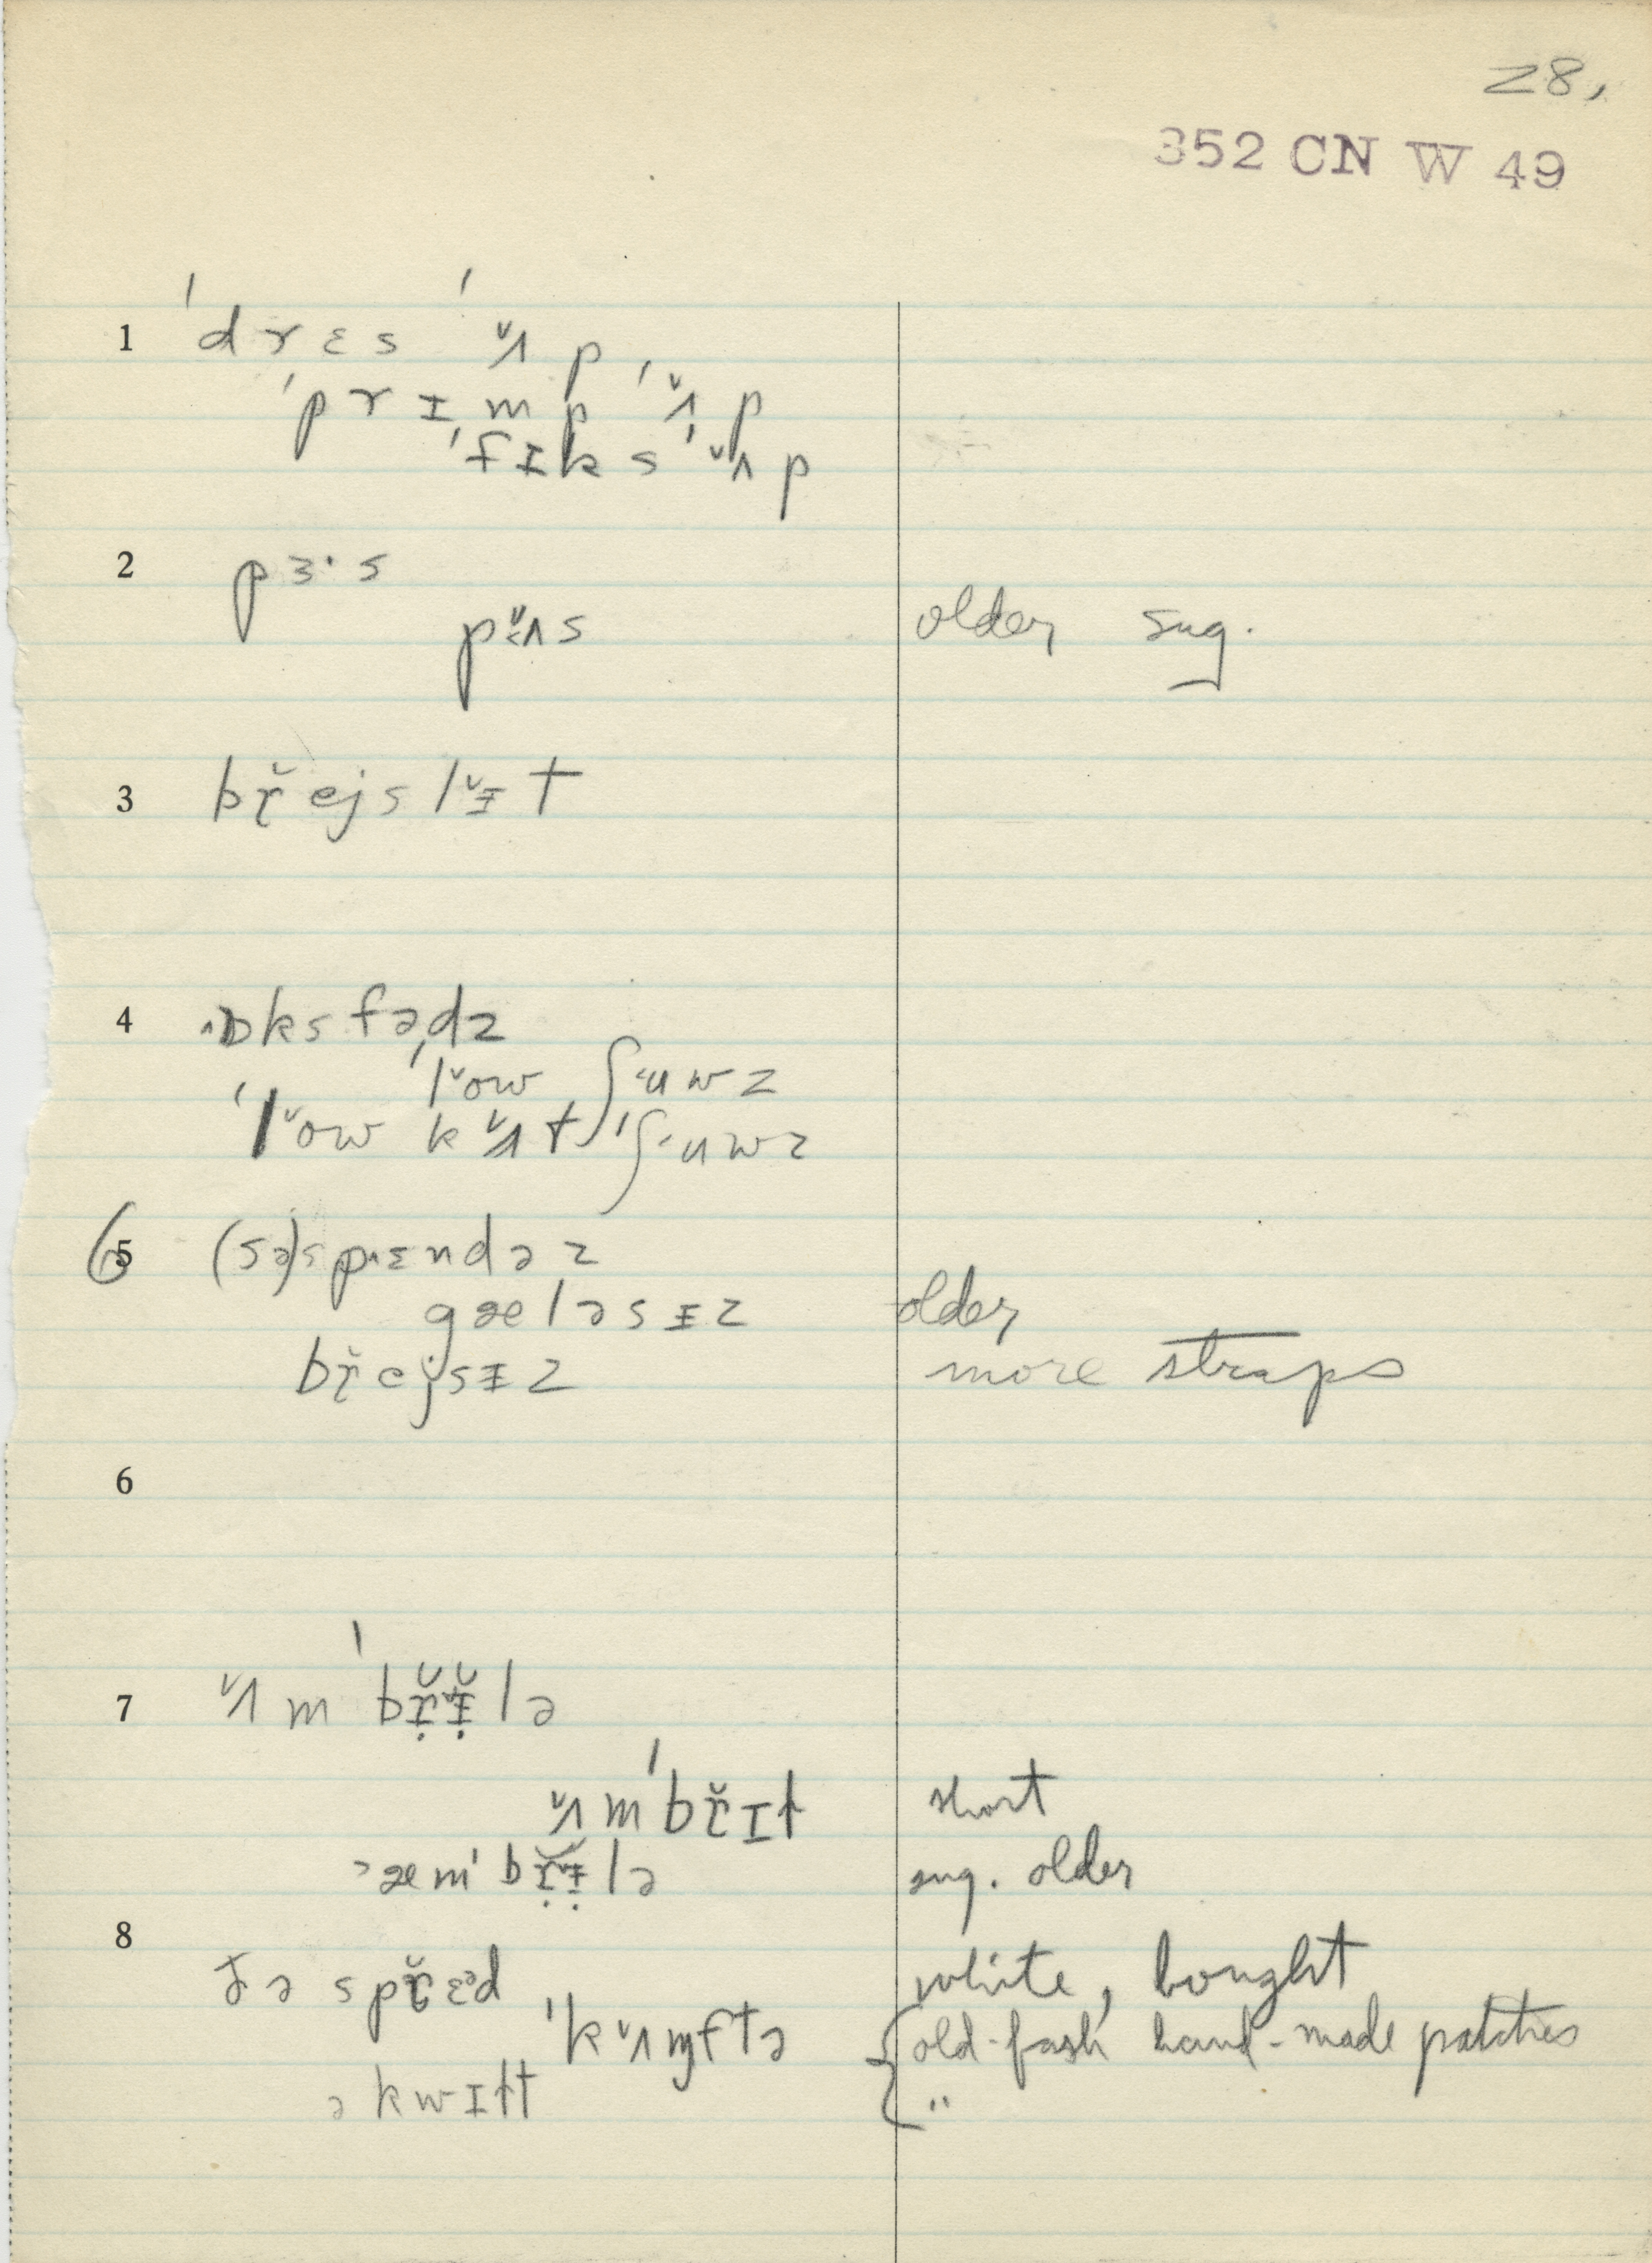 28,
352 CN W 49
1 ˈdrɛs ˈʌ̌p
ˈprɪmp ˈʌ̌p
ˈfɪks ˈʌ̌p
2 pɜ·s
pʌ̌s older sug.
3 bř̨ejslɪ̵̌t
4 ɒksfədz
ˈlˇow ʃ˂uwz
ˈlˇow kʌ̌t ˈʃ˂uwz
6 5 (sə)sp˄ɛndəz
gæləsɪ̵z older
břejsɪ̵z more straps
6
7 ʌ̌mˈbřɪ̵̌lə
ʌ̌mˈbřɪt short
˃æmˈbřɪ̵̌lə sug. older
8 ðə spřɛᵊd white, bought
ˈkʌ̌ɱftə old-fash hand-made patches
ə kwɪɫt "